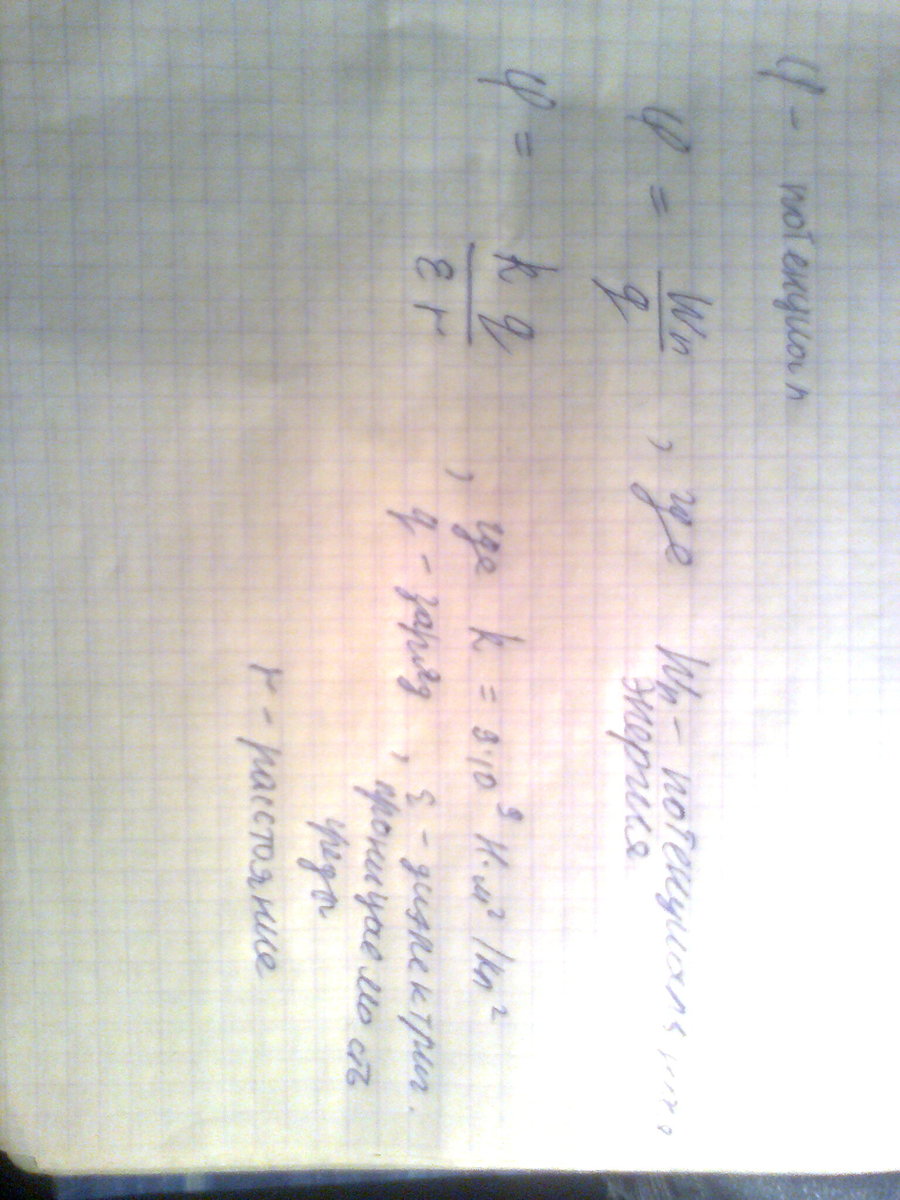 φ - потенциал
φ = Wп / q , где Wп - потенциальная
энергия
φ = k q / ε r , где k = 9·10⁹ Н·м² / кл²
q - заряд , ε - диэлектрич.
проницаемость
среды
r - расстояние